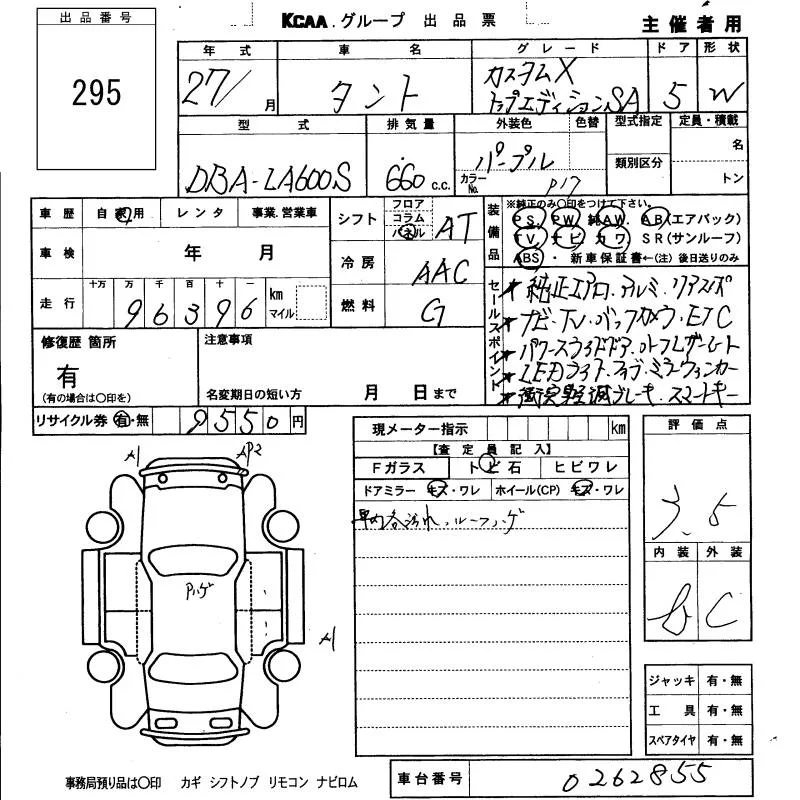 KCAA.グループ 出品票
主催者用
出品番号
295
年式 車名 グレード ドア 形状
27/ 月 タント カスタムX トップエディションSA 5 W
型式 排気量 外装色 色替 型式指定 定員・積載
DBA-LA600S 660 c.c. パープル
カラーNo. P17
類別区分
名
トン
車歴 自家用 レンタ 事業.営業車
車検 年 月
走行 十万 万 千 百 十 一
96396 km マイル
シフト フロア コラム パネル AT
冷房 AAC
燃料 G
装備品
※純正のみ〇印をつけて下さい。
PS, PW, 純AW, AB(エアバック)
TV, ナビ, カワ, SR(サンルーフ)
ABS ・ 新車保証書←(注)後日送りのみ
セールスポイント
純正エアロ.アルミ.リアスポ
ナビ・TV・バックカメラ・ETC
パワースライドドア.オートクルーズ
LEDライト.フォグ.ミラーウィンカー
衝突軽減ブレーキ.スマートキー
修復歴 箇所
有
(有の場合は〇印を)
注意事項
名変期日の短い方 月 日まで
リサイクル券 有・無 9550円
現メーター指示 km
【査定員記入】
Fガラス トビ石 ヒビワレ
ドアミラー キズ・ワレ ホイール(CP) キズ・ワレ
車内各汚れ.ルーフハゲ
評価点
3.5
内装 外装
B C
A1
AP2
Pハゲ
A1
ジャッキ 有・無
工具 有・無
スペアタイヤ 有・無
事務局預り品は〇印 カギ シフトノブ リモコン ナビロム
車台番号 0262855